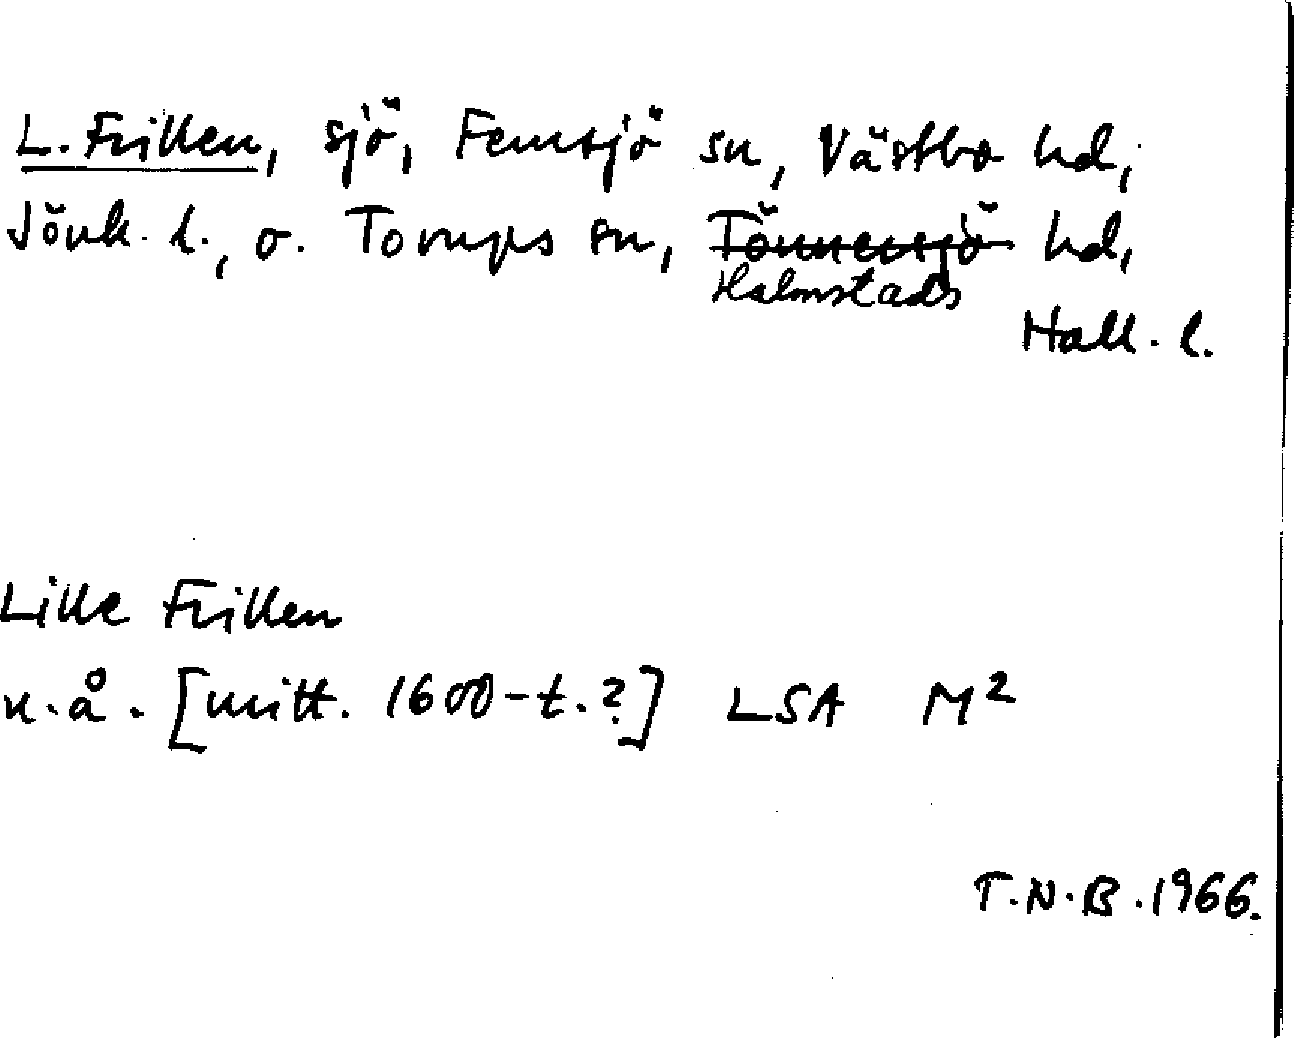 L. Frillen, sjö, Femsjö sn, Västbo hd,
Jönk. l., o. Torups sn, Tönnersjö hd,
Halmstads
Hall. l.
Lille Frillen
u. å. [mitt. 1600-t.?] LSA M²
T.N.B. 1966.